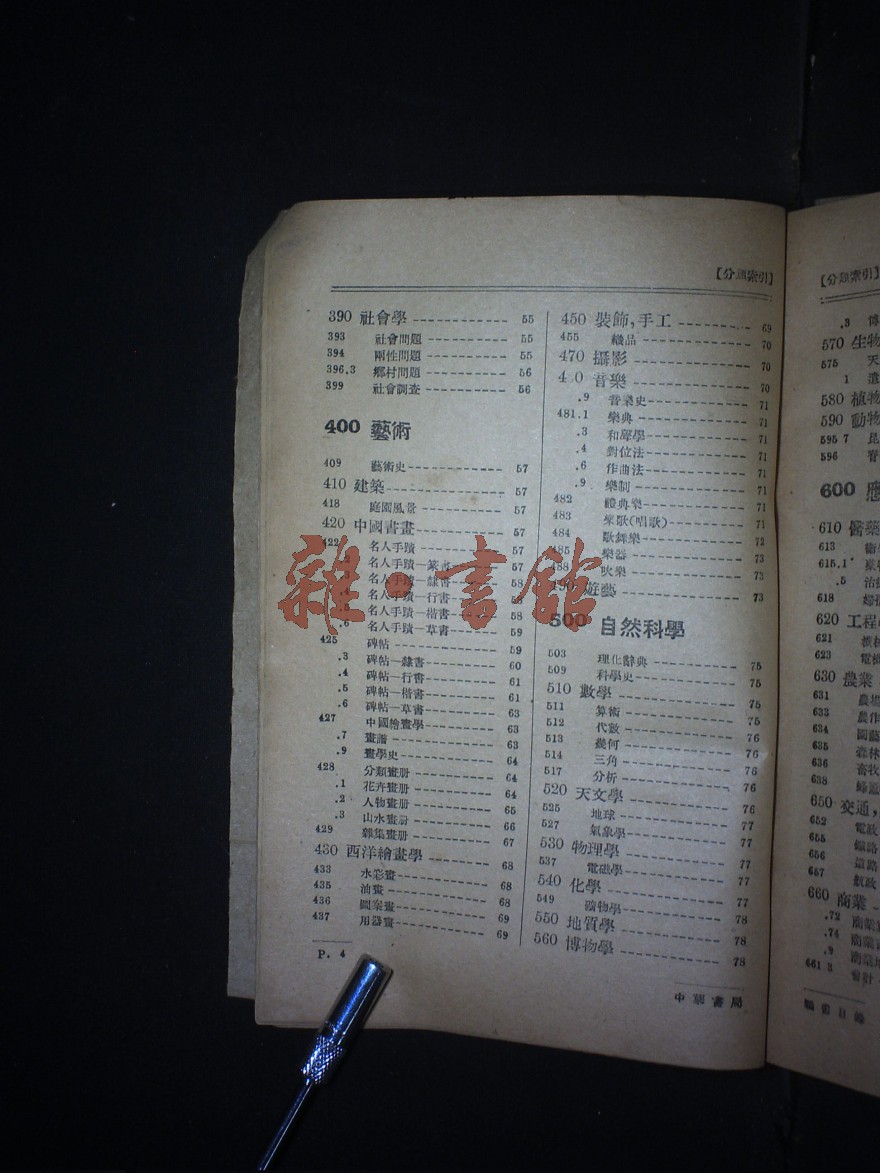 [分類索引]
390 社會學 55
393 社會問題 55
394 兩性問題 55
396.3 鄉村問題 56
399 社會調查 56
400 藝術
409 藝術史 57
410 建築 57
418 庭園風景 57
420 中國書畫 57
422 名人手蹟 57
名人手蹟—篆書 57
名人手蹟—隸書 58
名人手蹟—行書 58
.5 名人手蹟—楷書 58
.6 名人手蹟—草書 59
425 碑帖 59
.3 碑帖—隸書 60
.4 碑帖—行書 61
.5 碑帖—楷書 61
.6 碑帖—草書 63
427 中國繪畫學 63
.7 畫譜 63
.9 畫學史 64
428 分類畫册 64
.1 花卉畫册 64
.2 人物畫册 65
.3 山水畫册 66
429 雜集畫册 67
430 西洋繪畫學 68
433 水彩畫 68
435 油畫 68
436 圖案畫 69
437 用器畫 69
P. 4
450 裝飾,手工 69
455 織品 70
470 攝影 70
4 0 音樂 70
.9 音樂史 71
481.1 樂典 71
.3 和聲學 71
.4 對位法 71
.6 作曲法 71
.9 樂制 71
482 禮典樂 71
483 聲歌(唱歌) 71
484 歌舞樂 72
485 樂器 73
488 吹樂 73
490 遊藝 73
500 自然科學
503 理化辭典 75
509 科學史 75
510 數學 75
511 算術 75
512 代數 76
513 幾何 76
514 三角 76
517 分析 76
520 天文學 76
525 地球 77
527 氣象學 77
530 物理學 77
537 電磁學 77
540 化學 77
549 礦物學 78
550 地質學 78
560 博物學 78
中華書局
[分類索引]
.3 博
570 生物
575 天
1 遺
580 植物
590 動物
595 7 昆
596 脊
600 應
610 醫藥
613 衛
615.1 藥物
.5 治
618 婦
620 工程
621 機械
623 電機
630 農業
631 農場
633 農作
634 園藝
635 森林
636 畜牧
638 蜂
650 交通,
652 電政
655 鐵路
656 道路
657 航政
660 商業
.72 商業
.74 商業
.9 商業地
661 3 會計
圖書目錄
雜·書館